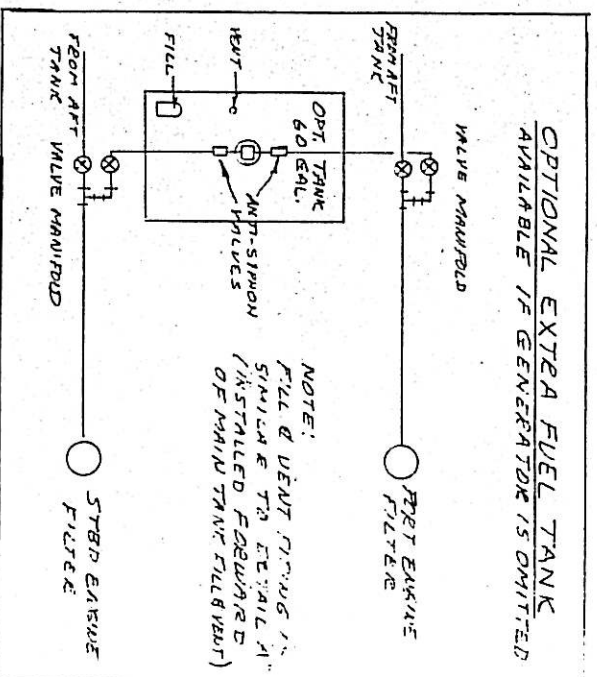 OPTIONAL EXTRA FUEL TANK
AVAILABLE IF GENERATOR IS OMITTED
VALVE MANIFOLD
FROM AFT
TANK
PORT ENGINE
FILTER
OPT. TANK
60 GAL.
ANTI-SIPHON
VALVES
VENT
FILL
NOTE:
FILL & VENT PIPING IS
SIMILAR TO DETAIL "A"
(INSTALLED FORWARD
OF MAIN TANK FILL & VENT)
FROM AFT
TANK
VALVE MANIFOLD
STBD ENGINE
FILTER